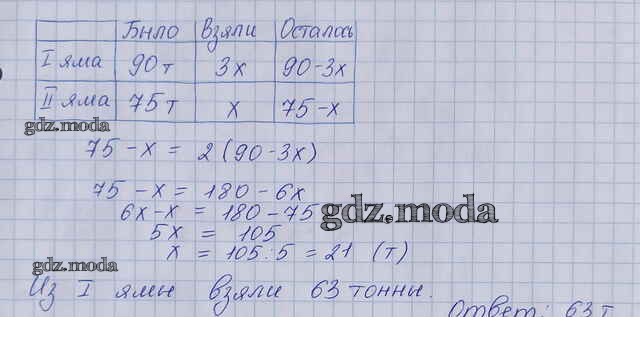 Было Взяли Осталось
I яма 90т 3x 90-3x
II яма 75т x 75-x
gdz.moda
75-x = 2(90-3x)
75-x = 180-6x
6x-x = 180-75
gdz.moda
5x = 105
x = 105:5 = 21 (т)
gdz.moda
Из I ямы взяли 63 тонны.
Ответ: 63 т